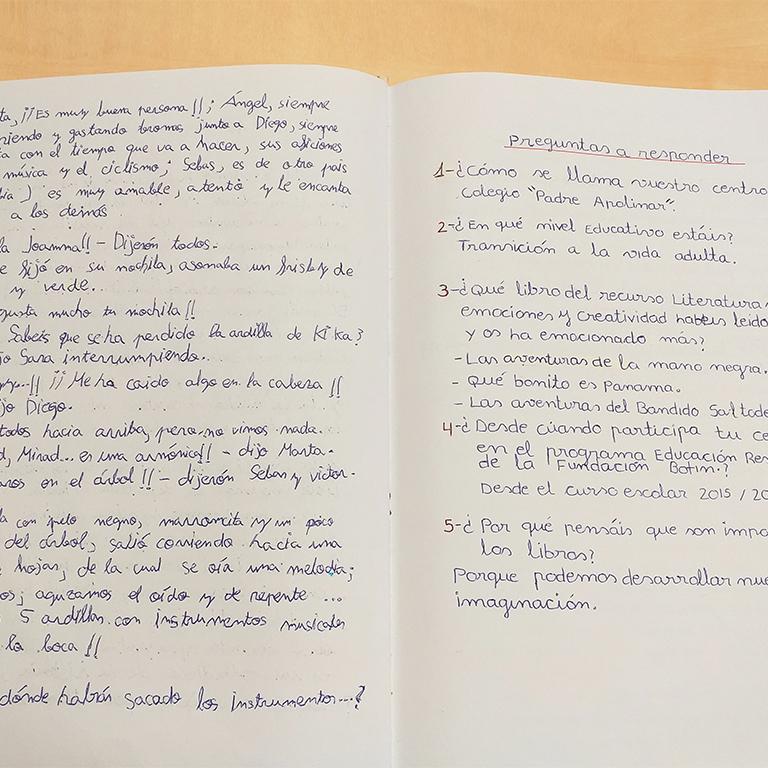 ta, ¡¡Es muy buena persona!!; Ángel, siempre
riendo y gastando bromas junto a Diego, siempre
ta con el tiempo que va a hacer, sus aficiones
música y el ciclismo; Sebas, es de otro pais
bia) es muy amable, atento y le encanta
a los demás
la Joamma!! - Dijerón todos.
e fijó en su mochila, asomaba un frisby de
y verde..
gusta mucho tu mochila!!
Sabeis que se ha perdido la ardilla de Kika?
jo Sara interrumpiendo..
¡¡Me ha caido algo en la cabeza!!
jo Diego.
todos hacia arriba, pero no vimos nada.
d, Mirad... es una armónica!! - dijo Marta.
aros en el árbol!! - dijerón Sebas y victor.
la con pelo negro, marroncita y un poco
del árbol, salió corriendo hacia una
e hojas, de la cual se oía una melodia;
os; aguzamos el oído y de repente ...
5 ardillas con instrumentos musicales
la boca!!
dónde habrán sacado los instrumentos...?
Preguntas a responder
1-¿Cómo se llama nuestro centro
Colegio "Padre Apolinar".
2-¿En qué nivel Educativo estáis?
Transición a la vida adulta.
3-¿Qué libro del recurso Literatura
emociones y creatividad habeis leído
y os ha emocionado más?
- Las aventuras de la mano negra.
- Qué bonito es Panama.
- Las aventuras del Bandido Saltode
4-¿Desde cúando participa tu ce
en el programa Educación Res
de la Fundación Botín?
Desde el curso escolar 2015/20
5-¿Por qué pensáis que son impo
los libros?
Porque podemos desarrollar nue
imaginación.